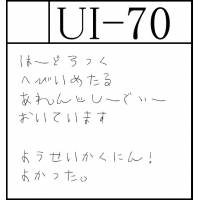 UI-70
はーどろっく
へびいめたる
あれんじしーでぃー
おいています
ようせいかくにん!
よかった。